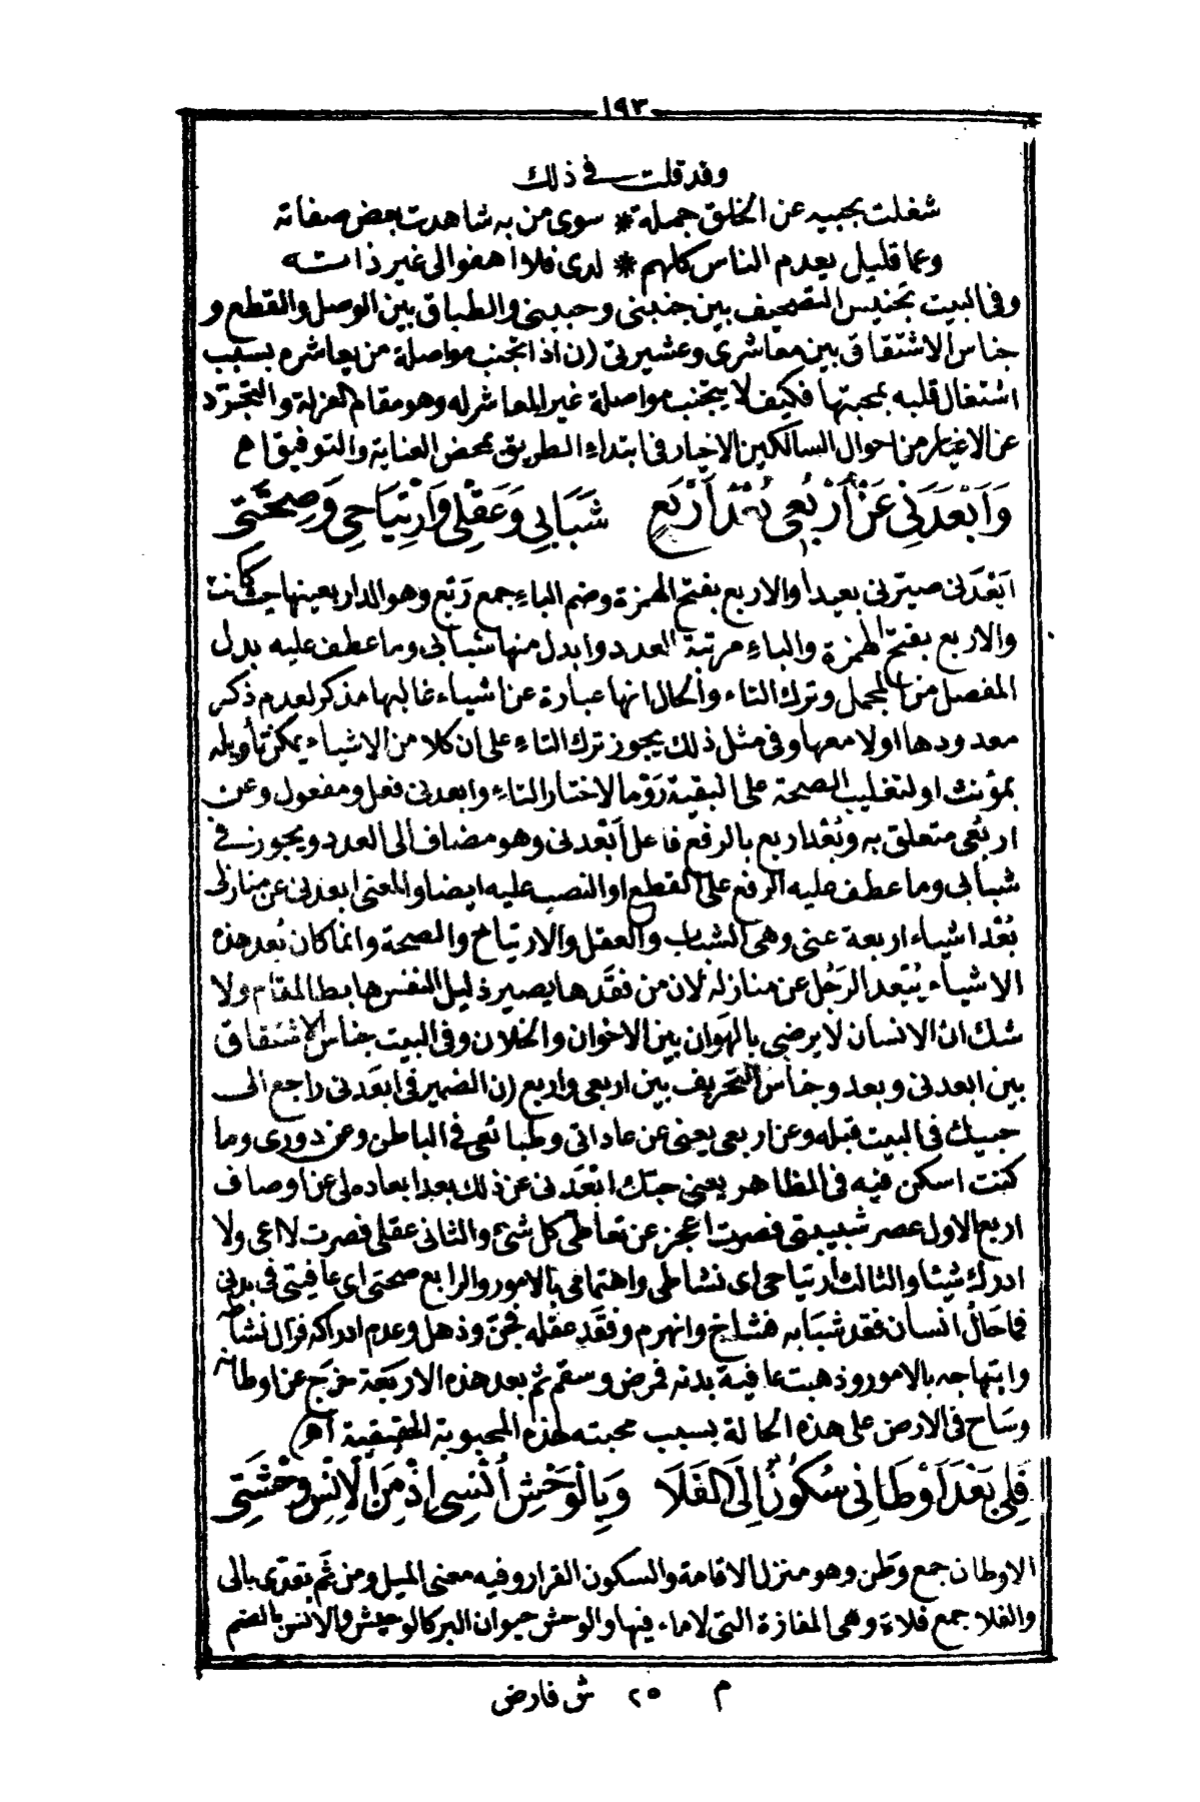 ١٩٣
وقد قلت في ذلك
شغلت بحبيه عن الخلق جملة * سوى من به شاهدت بعض صفاته
وعما قليل يعدم الناس كلهم * لدى فلا اهفوا لى غير ذاته
وفى البيت تجنيس التصحيف بين جنبنى وحببنى والطباق بين الوصل والقطع و
جناس الاشتقاق بين معاشرى وعشيرتى (ن اذا تجنب مواصلة من يعاشره بسبب
اشتغال قلبه بمحبتها فكيف لا يتجنب مواصلة غير المعاشر له وهو مقام العزلة والتجرّد
عن الاغيار من احوال السالكين الاخيار فى ابتداء الطريق بمحض العناية والتوفيق اهـ
وَاَبْعَدَنِى عَنْ اَرْبُعِى بُعْدُ اَرْبَعٍ شَبَابِى وَعَقْلِى وَارْتِيَاحِى وَصِحَّتِى
ابْعَدَنى صيّرنى بعيداً والاربع بفتح الهمزة وضم الباء جمع رَبْع وهو الدار بعينها حيث كانت
والاربع بفتح الهمزة والباء مرتبة العدد وابدل منها شبابى وما عطف عليه بدل
المفصل من المجمل وترك التاء والحال انها عبارة عن اشياء غالبها مذكر لعدم ذكر
معدودها اولا معها وفى مثل ذلك يجوز ترك التاء على ان كلا من الاشياء يمكن تأويله
بمؤنث او لتغليب الصحة على البقية رَوْما لاختار التاء وابعدنى فعل ومفعول وعن
اربُعى متعلق به وبُعْد اربع بالرفع فاعل ابْعدنى وهو مضاف الى العدد ويجوز فى
شبابى وما عطف عليه الرفع على القطع او النصب عليه ايضا والمعنى ابعدنى عن منازلى
بُعْد اشياء اربعة عنى وهى الشباب والعقل والارتياح والصحة وانما كان بُعد هذه
الاشياء يُبْعد الرَجُل عن منازله لان من فقَدها يصير ذليل النفس هابط المقام ولا
شك ان الانسان لا يرضى بالهَوان بين الاخوان والخلان وفى البيت جناس الاشتقاق
بين ابعدنى وبعد وجناس التحريف بين اربعى واربع (ن الضمير فى ابعَدنى راجع الى
حبيك فى البيت قبله وعن اربعى يعنى عن عاداتى وطبائعى فى الباطن وعن دورى وما
كنت اسكن فيه فى المظاهر يعنى حبّك ابْعَدنى عن ذلك بعد ابعاده لى عن اوصاف
اربع الاول عصر شبيبتى فصرت اعجز عن تعاطى كل شئ والثانى عقلى فصرت لا اعى ولا
ادرك شيئا والثالث ارتياحى اى نشاطى واهتمامى بالامور والرابع صحتى اى عافيتى فى بدنى
فما حَالُ انسان فقد شبَابه فشاخ وانهرم وفقد عقله فجنّ وذهل وعدم ادراكه فزال نشاطه
وابتهاجه بالامور وذهبت عافية بدنه فمرض وسقم ثم بعد هذه الاربَعة خرج عن اوطانه
وسَاح فى الارض على هذه الحالة بسبب محبته لهذه المحبوبة الحقيقية اهـ)
فَلِى بَعْدَ اَوْطَانِى سُكُونٌ اِلَى الفَلَا وَبِالْوَحْشِ اُنْسِى اِذْ مِنَ الْاِنْسِ وَحْشَتِى
الاوطان جمع وَطَن وهو منزل الاقامة والسكون القرار وفيه معنى الميل ومن ثَم تعدّى بالى
والفلا جمع فلاة وهى المفازة التى لا ماء فيها والوحش حيوان البر كالوحيش والانْس بالضم
م ٢٥ ش فارض